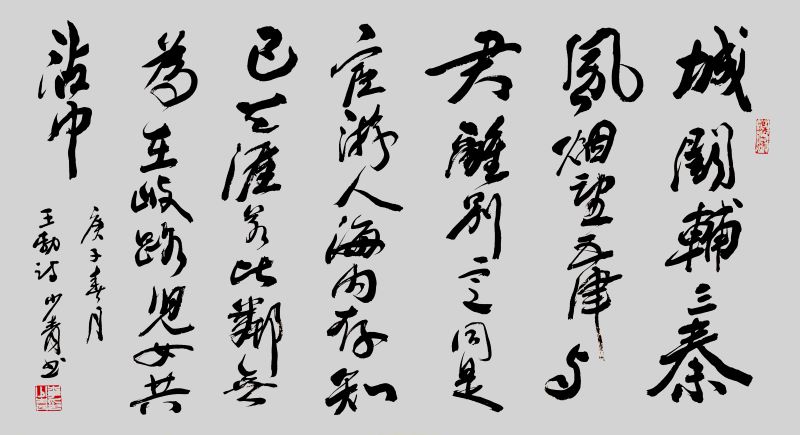 城闕輔三秦
風烟望五津与
君離別意同是
宦游人海内存知
己天涯若比鄰無
為在岐路児女共
沾巾
庚子春月
王勃诗少青书